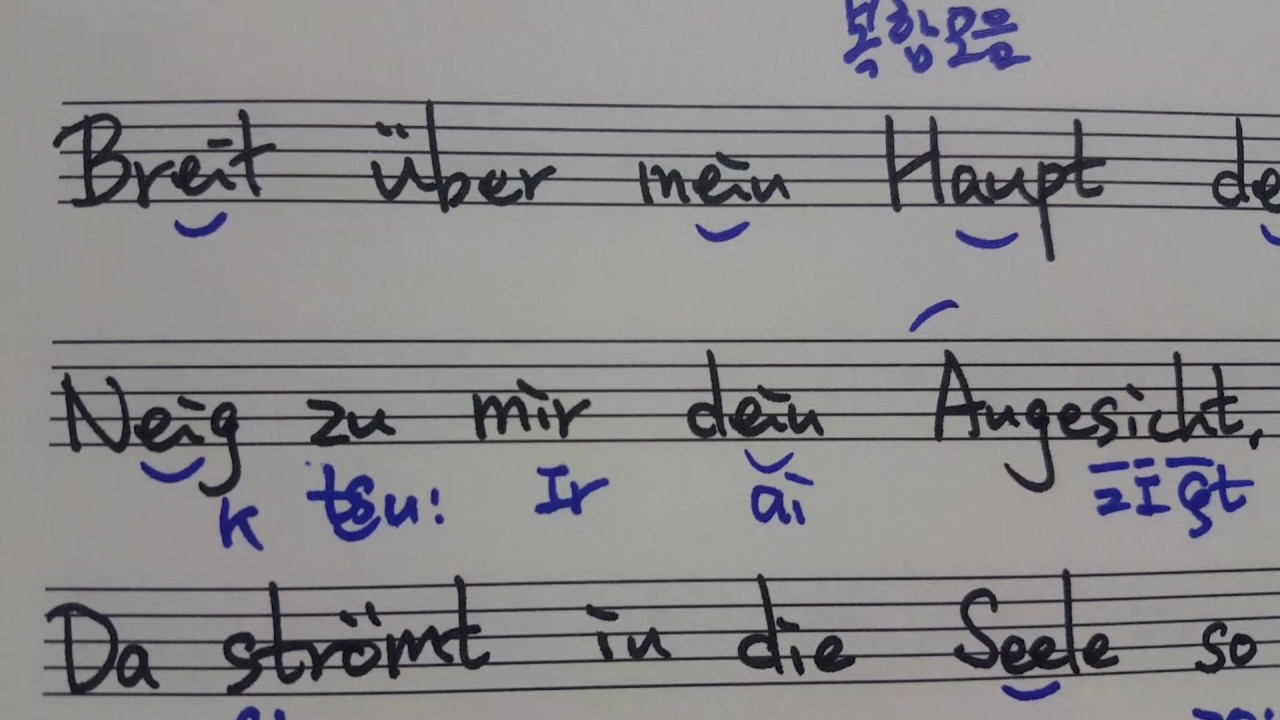 복합모음
Breit über mein Haupt de
Neig zu mir dein Angesicht,
k tsu: Ir ai zIçt
Da strömt in die Seele so